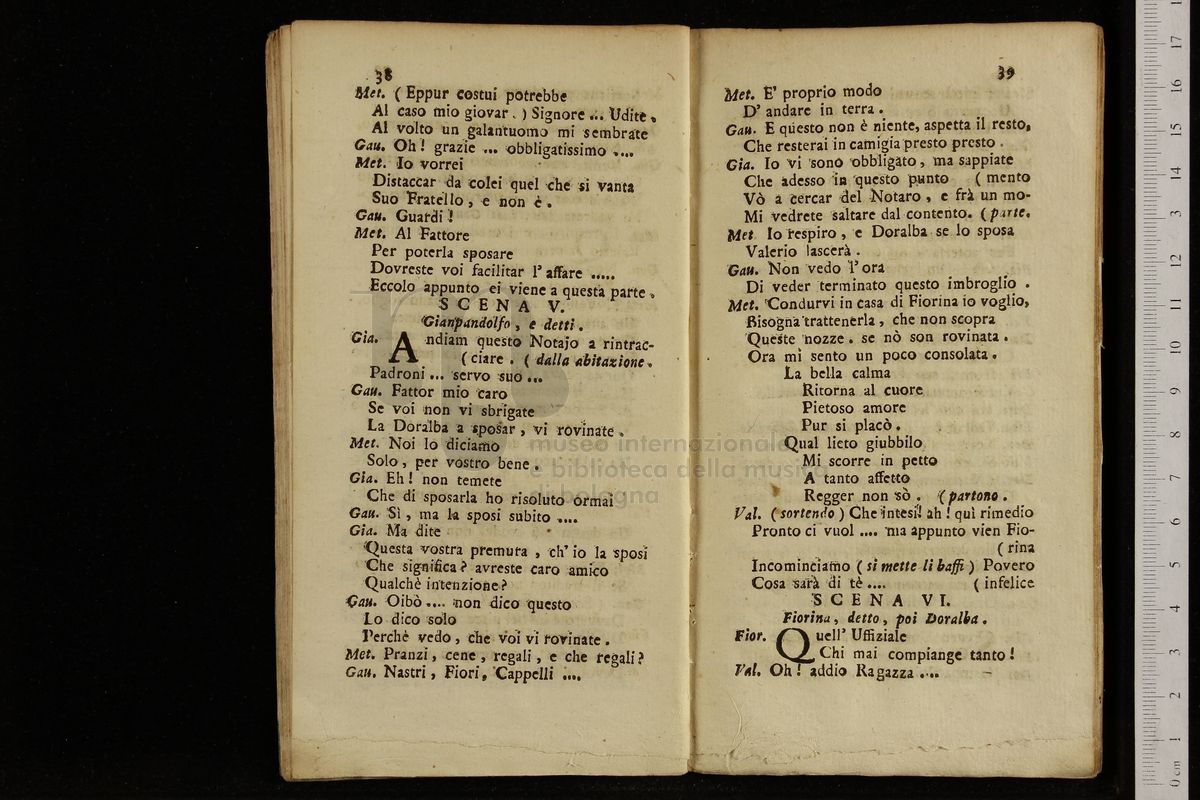 38
Met. ( Eppur costui potrebbe
Al caso mio giovar . ) Signore ... Udite .
Al volto un galantuomo mi sembrate
Gau. Oh ! grazie ... obbligatissimo ....
Met. Io vorrei
Distaccar da colei quel che si vanta
Suo Fratello , e non è .
Gau. Guardi !
Met. Al Fattore
Per poterla sposare
Dovreste voi facilitar l' affare .....
Eccolo appunto ei viene a questa parte .
SCENA V.
Gianpandolfo , e detti .
Gia. Andiam questo Notajo a rintrac-
( ciare . ( dalla abitazione .
Padroni ... servo suo ...
Gau. Fattor mio caro
Se voi non vi sbrigate
La Doralba a sposar , vi rovinate .
Met. Noi lo diciamo
Solo , per vostro bene .
Gia. Eh ! non temete
Che di sposarla ho risoluto ormai
Gau. Sì , ma la sposi subito ....
Gia. Ma dite
Questa vostra premura , ch' io la sposi
Che significa ? avreste caro amico
Qualchè intenzione ?
Gau. Oibò .... non dico questo
Lo dico solo
Perchè vedo , che voi vi rovinate .
Met. Pranzi , cene , regali , e che regali ?
Gau. Nastri , Fiori , Cappelli ....
39
Met. E' proprio modo
D' andare in terra .
Gau. E questo non è niente, aspetta il resto,
Che resterai in camigia presto presto .
Gia. Io vi sono obbligato , ma sappiate
Che adesso in questo punto ( mento
Vò a cercar del Notaro , e frà un mo-
Mi vedrete saltare dal contento. ( parte.
Met Io respiro , e Doralba se lo sposa
Valerio lascerà .
Gau. Non vedo l' ora
Di veder terminato questo imbroglio .
Met. Condurvi in casa di Fiorina io voglio,
Bisogna trattenerla , che non scopra
Queste nozze . se nò son rovinata .
Ora mi sento un poco consolata .
La bella calma
Ritorna al cuore
Pietoso amore
Pur si placò .
Qual lieto giubbilo
Mi scorre in petto
A tanto affetto
Regger non sò . ( partono .
Val. ( sortendo ) Che intesi! ah ! quì rimedio
Pronto ci vuol .... ma appunto vien Fio-
( rina
Incominciamo ( si mette li baffi ) Povero
Cosa sarà di tè .... ( infelice
SCENA VI.
Fiorina , detto , poi Doralba .
Fior. Quell' Uffiziale
Chi mai compiange tanto !
Val. Oh ! addio Ragazza ....
museo internazionale
e biblioteca della musica
di bologna
0 cm 1 2 3 4 5 6 7 8 9 10 11 12 13 14 15 16 17